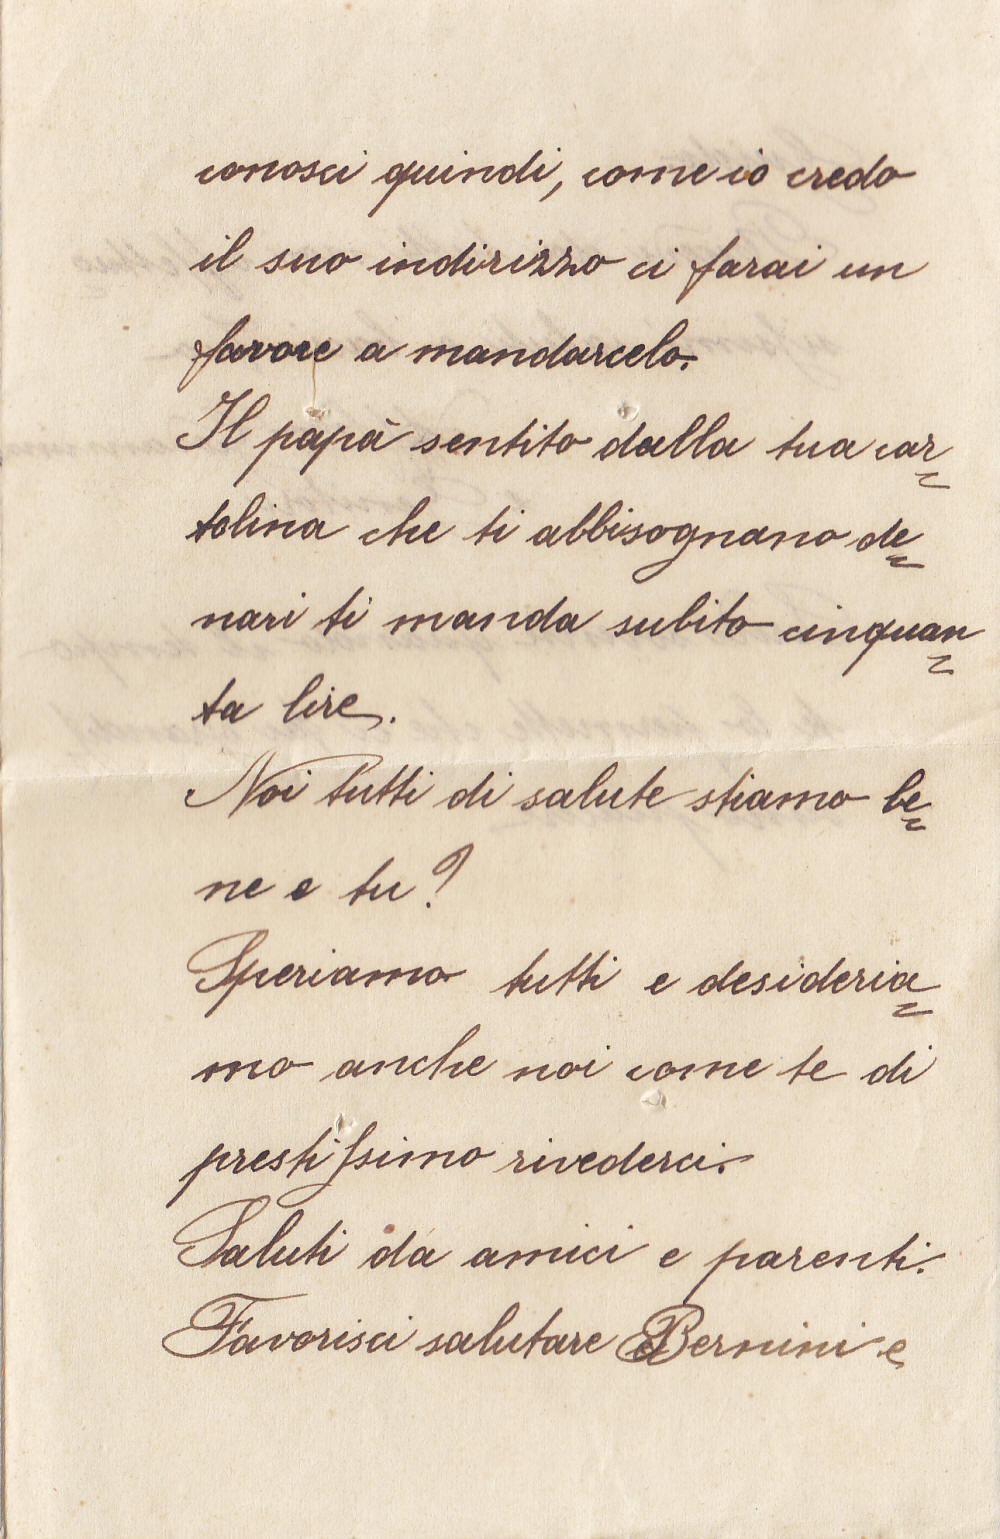 conosci quindi, come io credo
il suo indirizzo ci farai un
favore a mandarcelo.
Il papà sentito dalla tua car=
tolina che ti abbisognano de=
nari ti manda subito cinquan=
ta lire.
Noi tutti di salute stiamo be=
ne e tu?
Speriamo tutti e desideria=
mo anche noi come te di
prestissimo rivederci.
Saluti da amici e parenti.
Favorisci salutare Bernini e